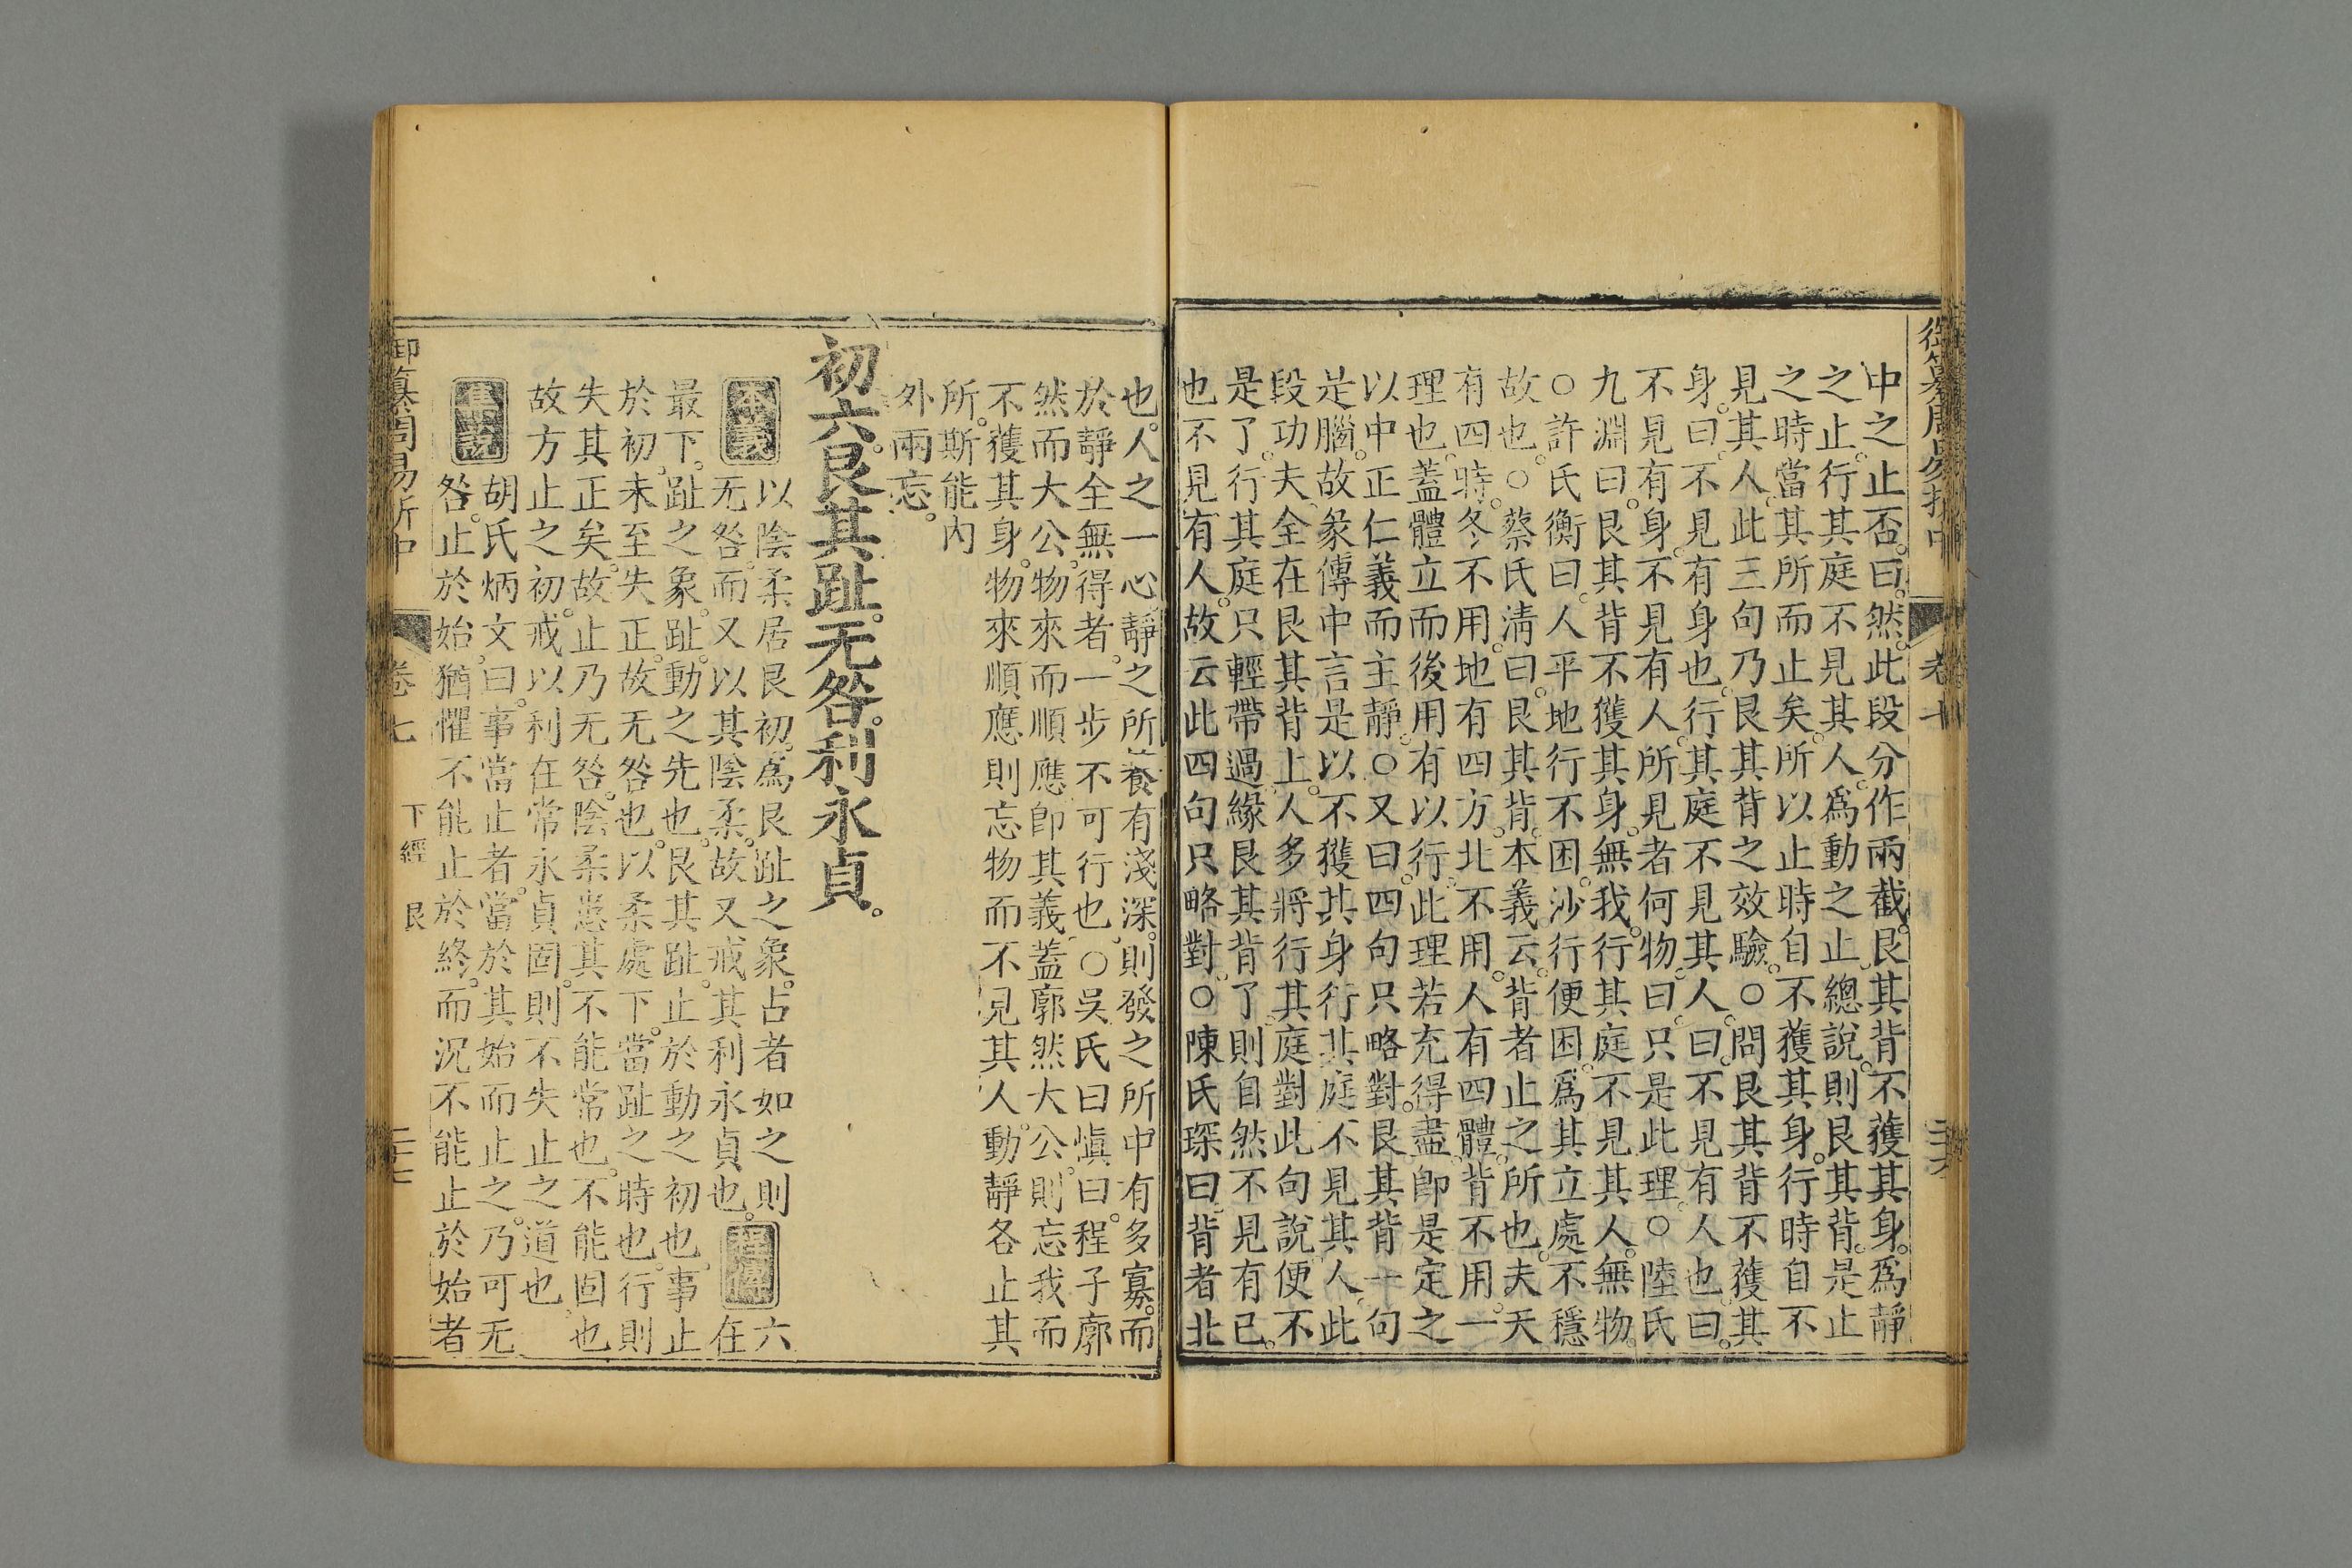 御纂周易折中 卷七
中之止否曰然此段分作兩截艮其背不獲其身爲靜
之止行其庭不見其人爲動之止總說則艮其背是止
之時當其所而止矣所以止時自不獲其身行時自不
見其人此三句乃艮其背之效驗○問艮其背不獲其
身曰不見有身也行其庭不見其人曰不見有人也曰
不見有身不見有人所見者何物曰只是此理○陸氏
九淵曰艮其背不獲其身無我行其庭不見其人無物
○許氏衡曰人平地行不困沙行便困爲其立處不穩
故也○蔡氏淸曰艮其背本義云背者止之所也夫天
有四時冬不用地有四方北不用人有四體背不用一
理也蓋體立而後用有以行此理若充得盡卽是定之
以中正仁義而主靜○又曰四句只略對艮其背一句
是腦故彖傳中言是以不獲其身行其庭不見其人此
段功夫全在艮其背上人多將行其庭對此句說便不
是了行其庭只輕帶過緣艮其背了則自然不見有已
也不見有人故云此四句只略對○陳氏琛曰背者北
也人之一心靜之所養有淺深則發之所中有多寡而
於靜全無得者一步不可行也○吳氏曰愼曰程子廓
然而大公物來而順應卽其義蓋廓然大公則忘我而
不獲其身物來順應則忘物而不見其人動靜各止其
所斯能內
外兩忘
初六艮其趾无咎利永貞
本義 以陰柔居艮初爲艮趾之象占者如之則
无咎而又以其陰柔故又戒其利永貞也 程傳 六在
最下趾之象趾動之先也艮其趾止於動之初也事止
於初未至失正故无咎也以柔處下當趾之時也行則
失其正矣故止乃无咎陰柔患其不能常也不能固也
故方止之初戒以利在常永貞固則不失止之道也
集說 胡氏炳文曰事當止者當於其始而止之乃可无
咎止於始猶懼不能止於終而況不能止於始者
御纂周易折中 卷七 下經 艮 二十七